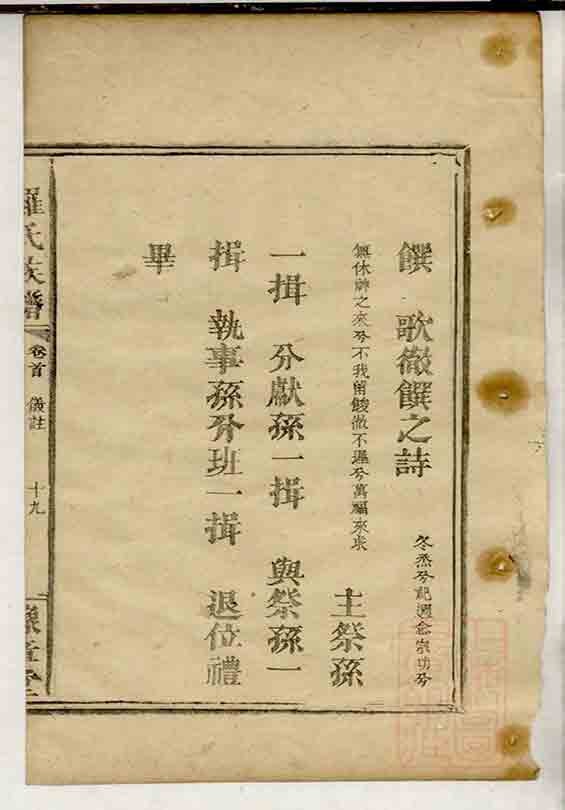 饌　歌徹饌之詩　冬烝兮祀週念宗功兮
無休神之來兮不我留餕徹不遲兮萬福來求　主祭孫
一揖　分獻孫一揖　與祭孫一
揖　執事孫分班一揖　退位禮
畢
羅氏族譜　卷首　儀註　十九　豫章堂